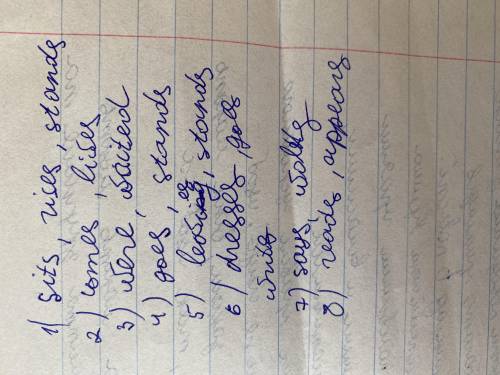 1) sits, rises, stands
2) comes, lives
3) were, waited
4) goes, stands
5) leaves, stands
6) dresses, goes
writes
7) says, walks
8) reads, appears